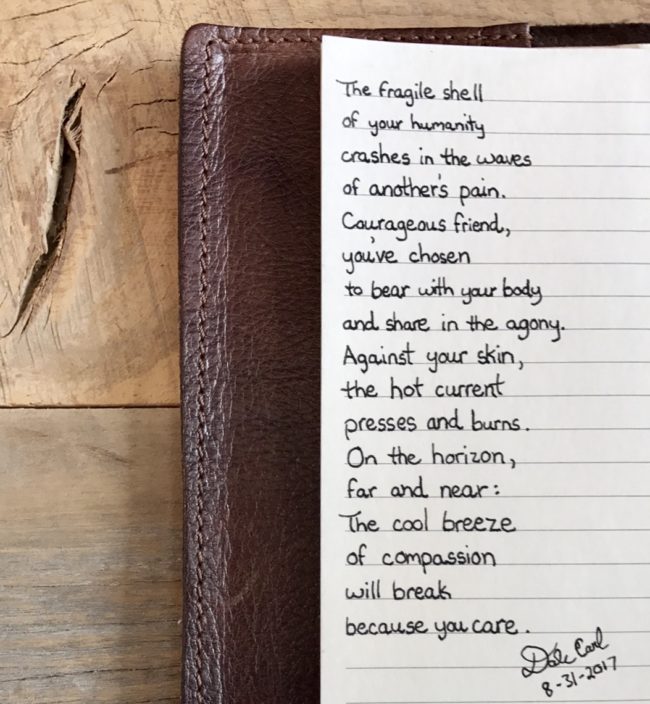 The fragile shell
of your humanity
crashes in the waves
of another's pain.
Courageous friend,
you've chosen
to bear with your body
and share in the agony.
Against your skin,
the hot current
presses and burns.
On the horizon,
far and near:
The cool breeze
of compassion
will break
because you care.
Dale Carl
8-31-2017